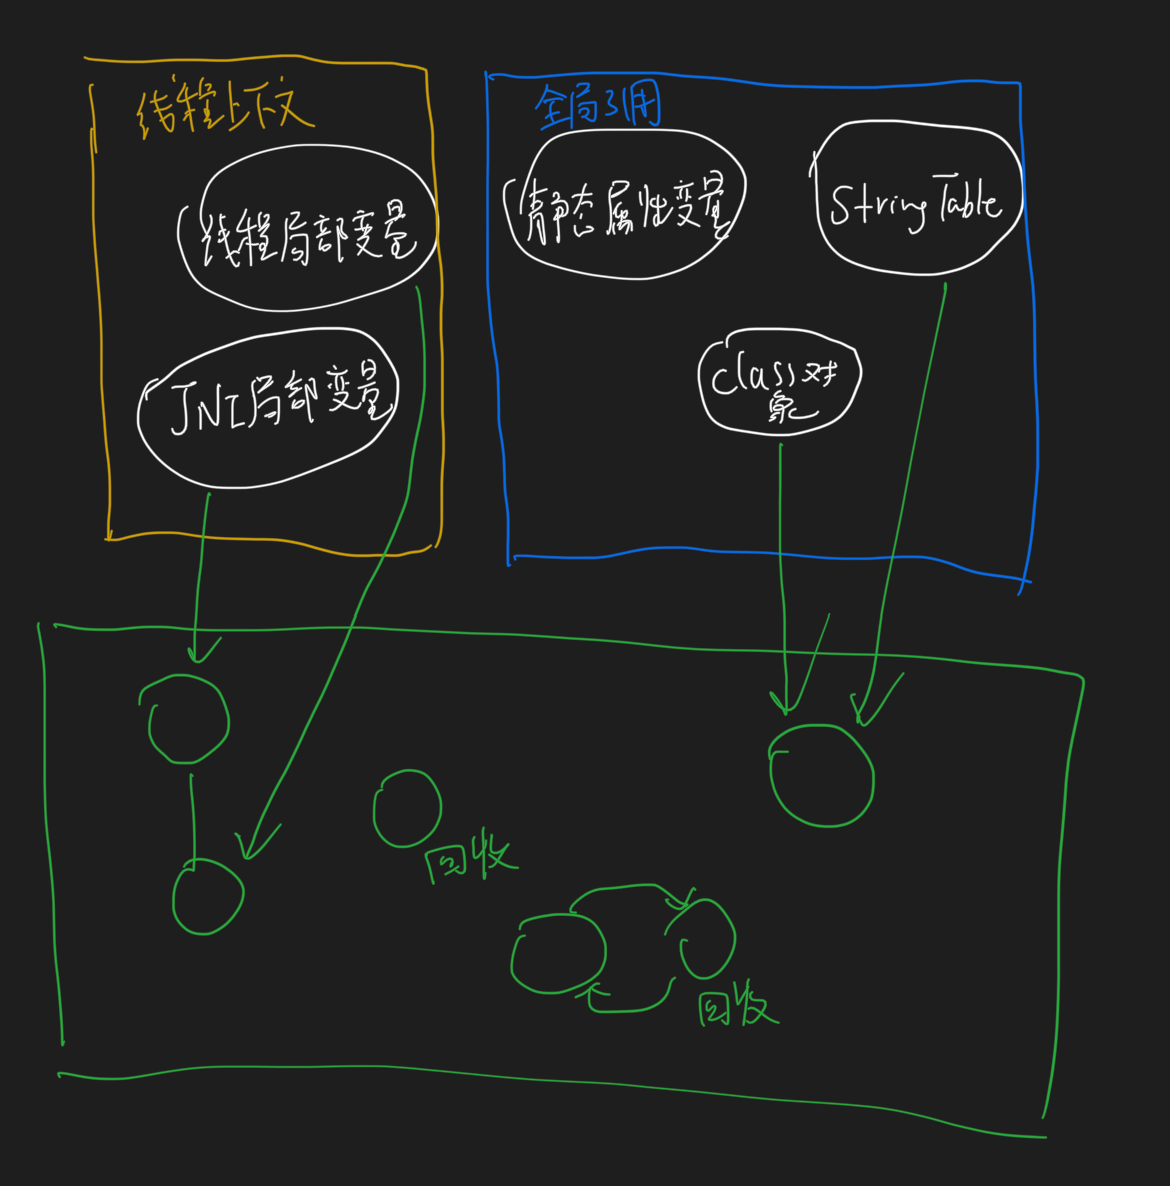 线程上下文
线程局部变量
JNI局部变量
全局引用
静态属性变量
StringTable
class对
象
回收
回收